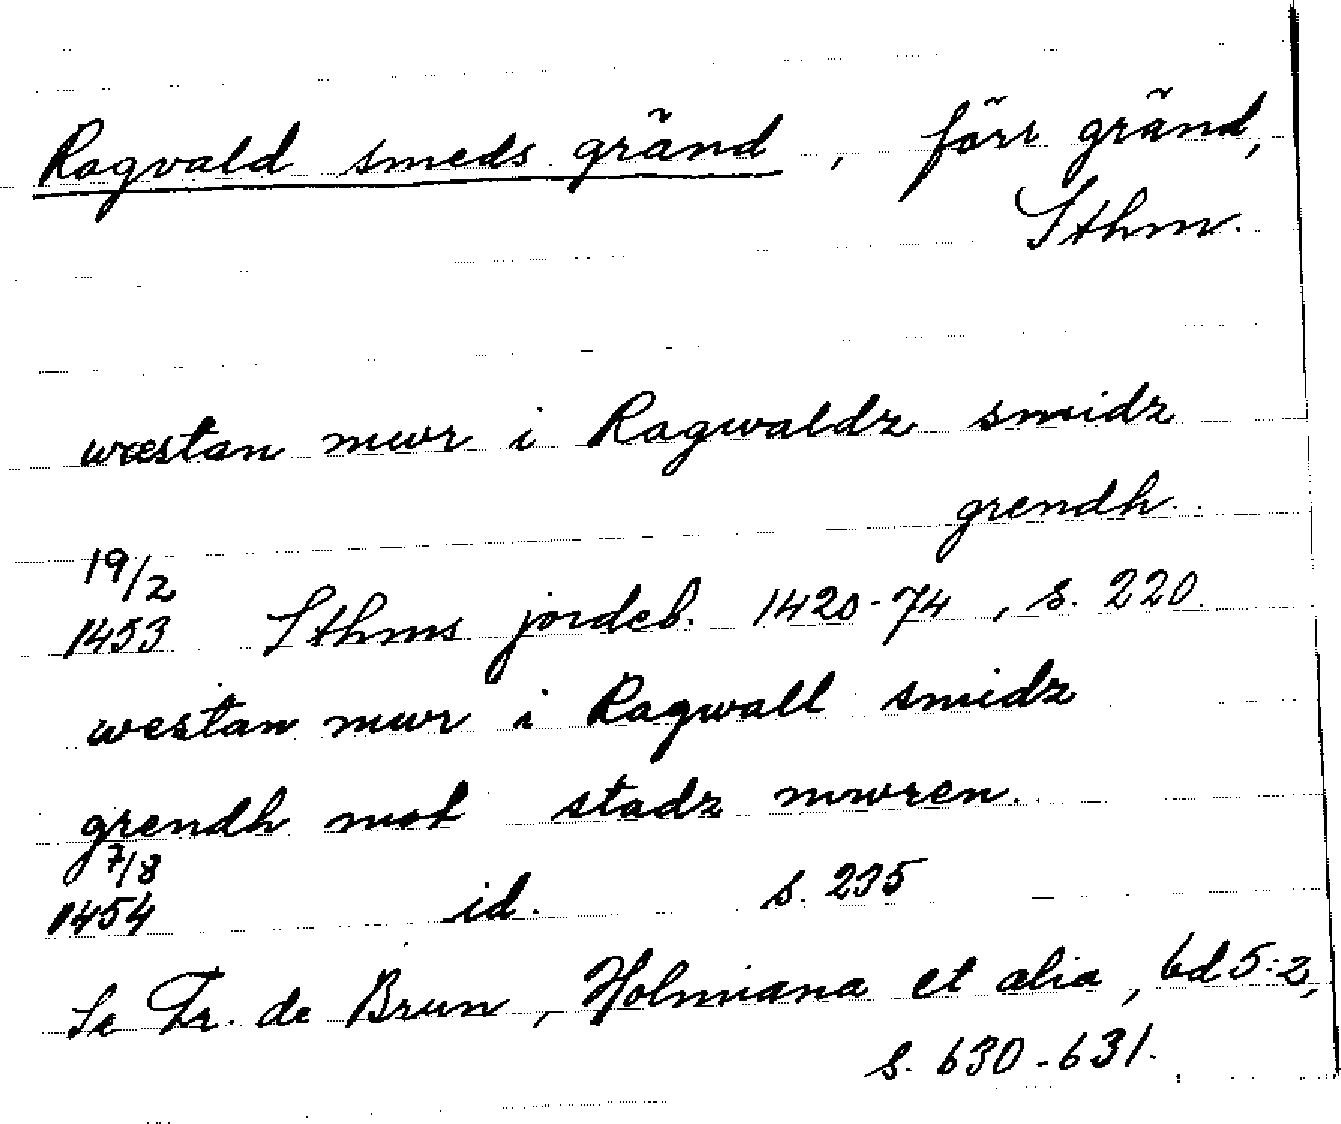 Ragvald smeds gränd, förr gränd,
Sthm.
wæstan mwr i Ragwaldz smidz
grendh.
19/2
1453 Sthms jordeb. 1420-74, s. 220.
westan mwr i Ragwall smidz
grendh mot stadz mwren.
7/8
1454 id. s. 235
Se Fr. de Brun, Holmiana et alia, bd 5:2,
s. 630-631.